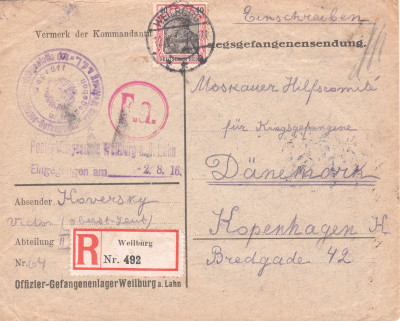 Einschreiben
Vermerk der Kommandantur
Kriegsgefangenensendung.
WEILBURG
40 40
F.a.
Weilburg a. d. Lahn
Eingegangen am 2. 8. 16.
Moskauer Hilfscomité
für Kriegsgefangene
Dänemark
Kopenhagen K
Bredgade 42
Absender Koversky
Victor (Oberst-Leut)
Abteilung II
Nr. 64
R
Weilburg
Nr. 492
Offizier-Gefangenenlager Weilburg a. Lahn